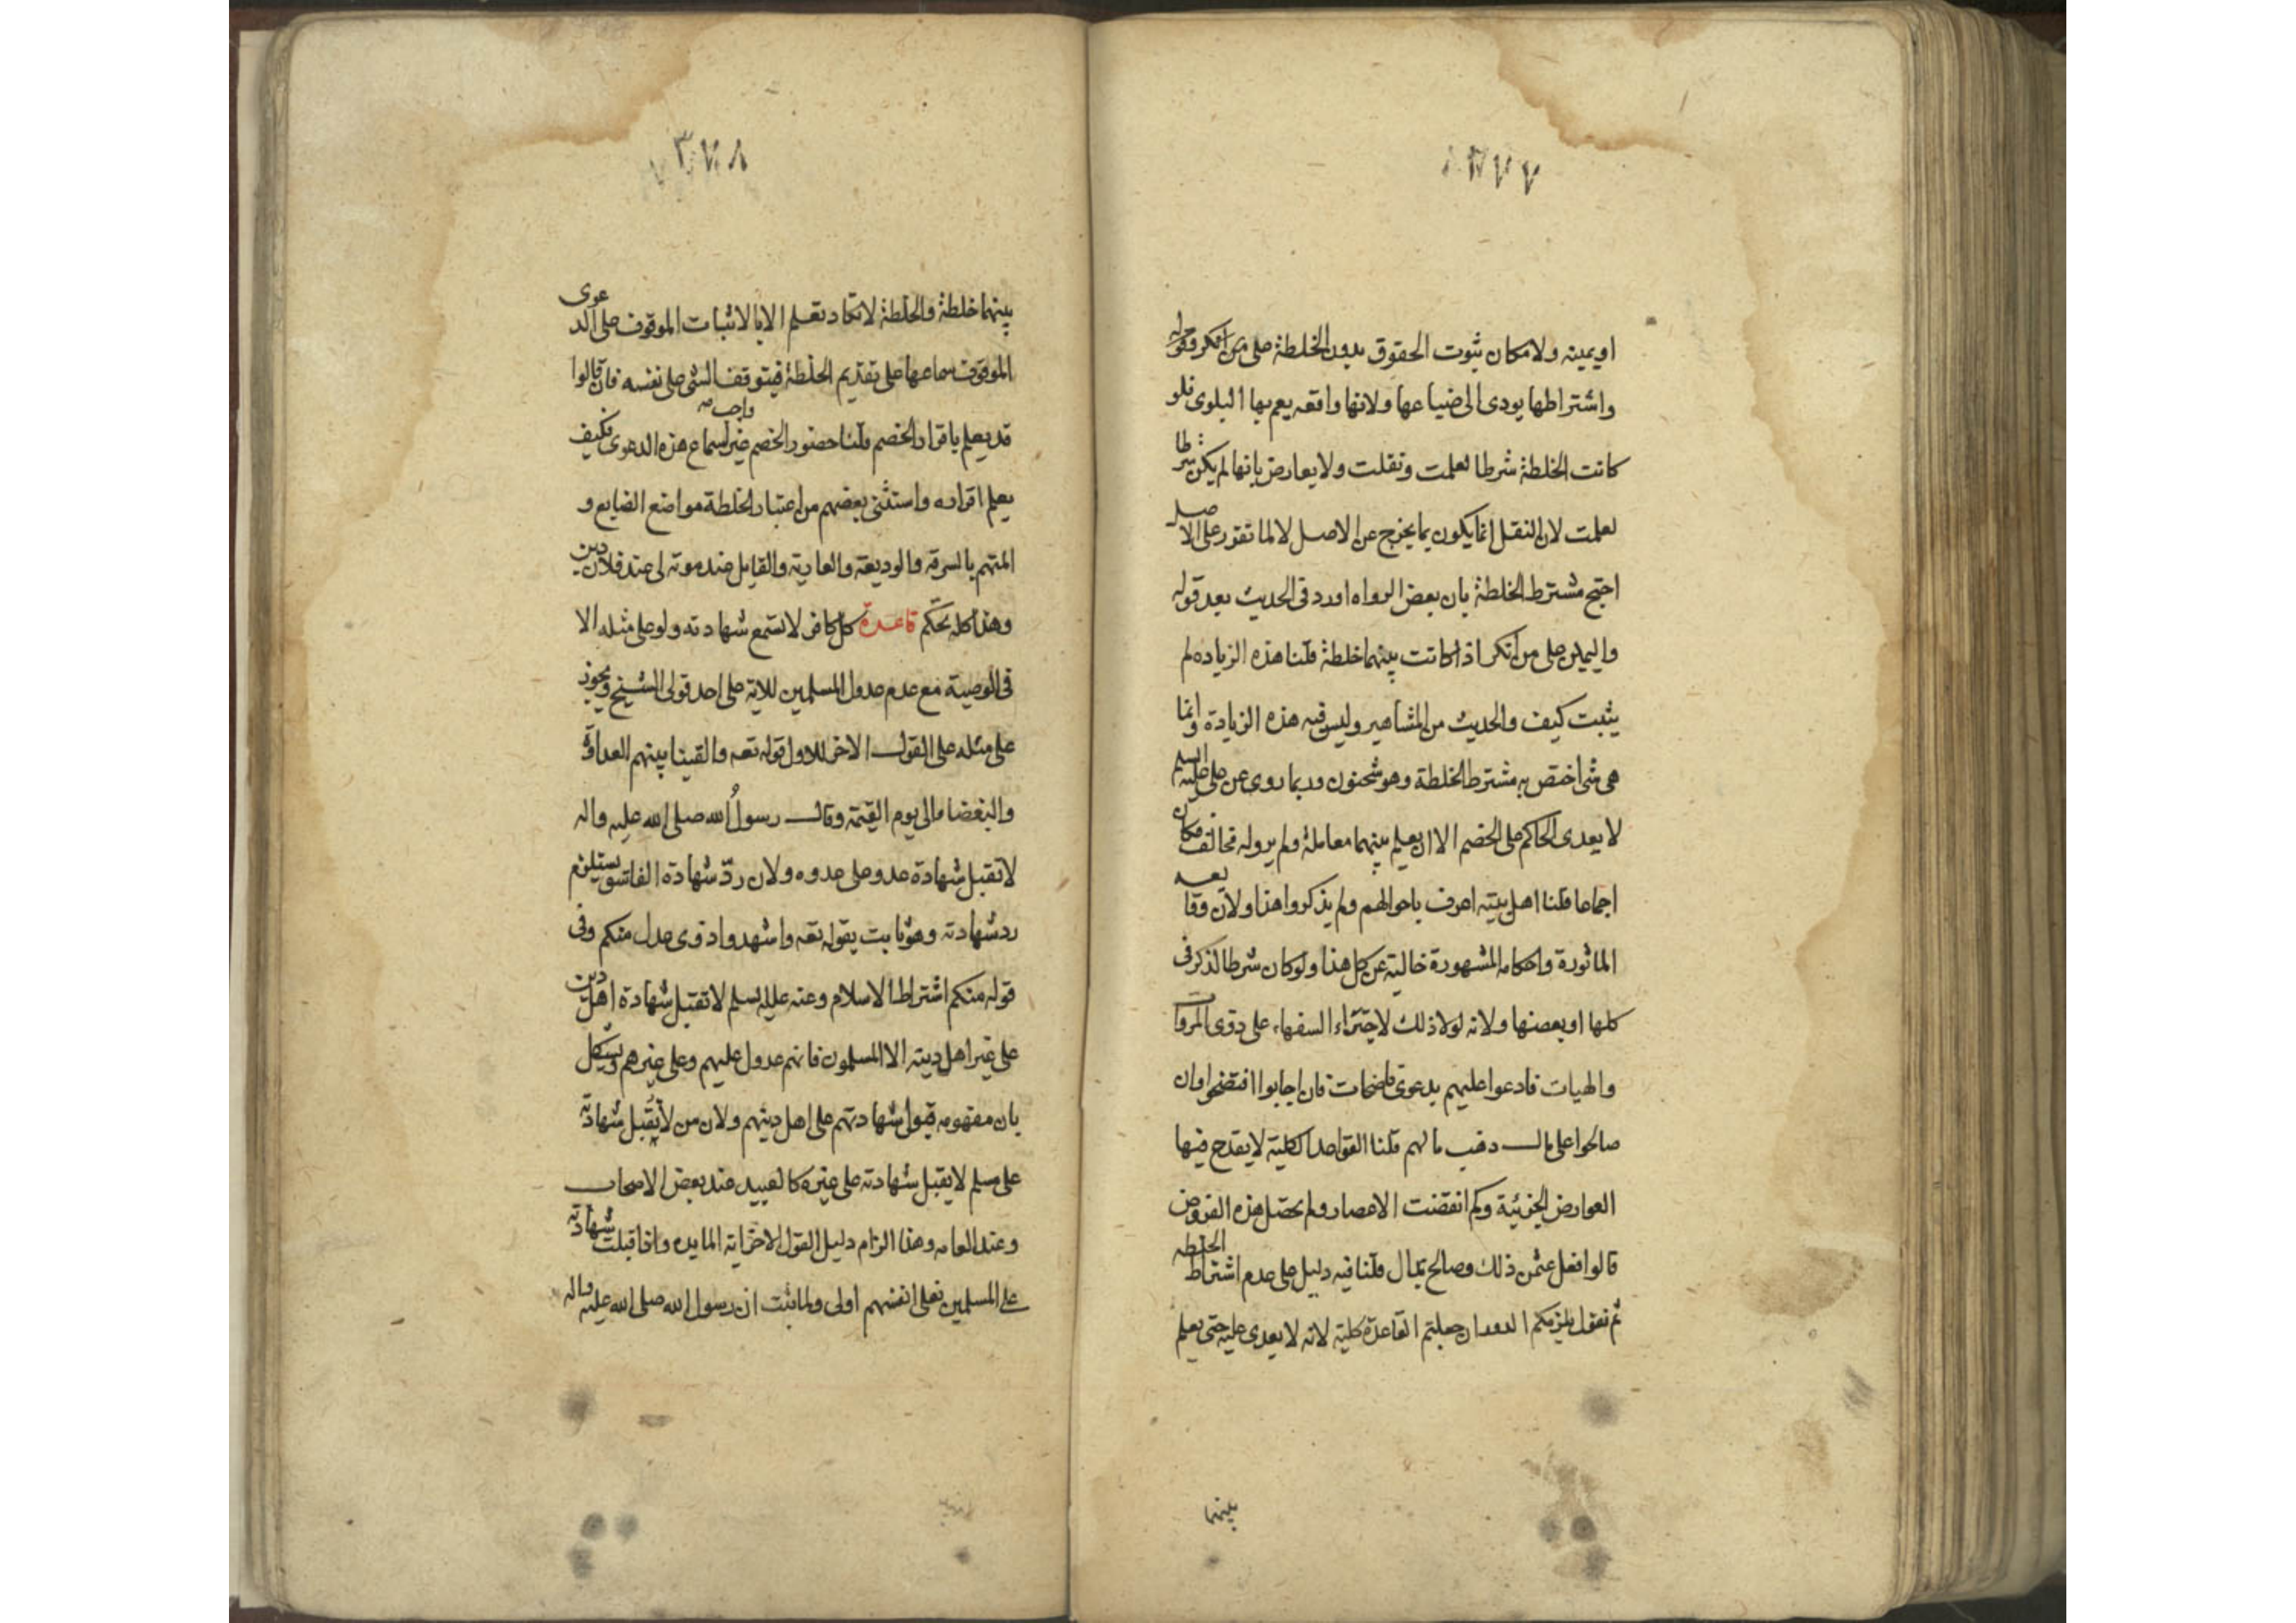 ٣٧٧
او يمينه ولامكان ثبوت الحقوق بدون الخلطة على من انكر وقوله
واشتراطها يودى الى ضياعها ولانها واقعه يعم بها البلوى فلو
كانت الخلطة شرطا لعلمت ونقلت ولا يعارض بانها لم يكن شرطا
لعلمت لان النقل انما يكون بما يخرج عن الاصل لا لما تقرر على الاصل
احتج مشترط الخلطة بان بعض الرواه اورد فى الحديث بعد قوله
واليمين على من انكر اذا كانت بينهما خلطة قلنا هذه الزياده لم
يثبت كيف والحديث من المشاهير وليس فيه هذه الزيادة وانما
هى شى اختص به مشترط الخلطة وهو شحنون وربما روى عن على عليه السلم
لا يعدى الحاكم على الخصم الا ان يعلم بينهما معاملة ولم يرو له مخالف فكان
اجماعا قلنا اهل بيته اعرف باحوالهم ولم يذكروا هذا ولان وقايعه
الماثورة واحكامه المشهورة خالية عن كل هذا ولو كان شرطا لذكر فى
كلها او بعضها ولانه لولا ذلك لاجتراء السفهاء على ذوى المروات
والهيات فادعوا عليهم بدعوى فاضحات فان اجابوا افتضحوا وان
صالحوا على مال ذهب مالهم قلنا القواعد الكلية لا يقدح فيها
العوارض الجزئية وكم انقضت الاعصار ولم يحصل هذه الفروض
قالوا فعل عثمن ذلك وصالح بمال قلنا فيه دليل على عدم اشتراط الخلطه
ثم نقول يلزمكم الدور ان جعلتم القاعدة كلية لانه لا يعدى عليه حتى يعلم
بينهما
٣٧٨
بينهما خلطة والخلطة لا تكاد تعلم الا بالاثبات الموقوف على الدعوى
الموقوف سماعها على تقديم الخلطة فيتوقف الشى على نفسه فان قالوا
قد يعلم باقرار الخصم قلنا حضور الخصم غير واجب لسماع هذه الدعوى فكيف
يعلم اقراره واستثنى بعضهم من اعتبار الخلطة مواضع الضايع و
المتهم بالسرقه والوديعة والعارية والقايل عند موته لى عند فلان دين
وهذا كله تحكم قاعدة كل كافر لا تسمع شهادته ولو على مثله الا
فى الوصية مع عدم عدول المسلمين للاية على احد قولى الشيخ ويجوز
على مثله على القول الاخر للاول قوله تعه والقينا بينهم العداوة
والبغضا الى يوم القيمة وقال رسول الله صلى الله عليه واله
لا تقبل شهادة عدو على عدوه ولان ردّ شهادة الفاسق يستلزم
رد شهادته وهو ثابت بقوله تعه واشهدوا ذوى عدل منكم وفى
قوله منكم اشتراط الاسلام وعنه عليه السلم لا تقبل شهادة اهل دين
على غير اهل دينه الا المسلمون فانهم عدول عليهم وعلى غيرهم ويشكل
بان مفهومه قبول شهادتهم على اهل دينهم ولان من لا يقبل شهادته
على مسلم لا يقبل شهادته على غيره كالعبيد عند بعض الاصحاب
وعند العامه وهذا الزام دليل القول الاخر اية المايده واذا قبلت شهادته
على المسلمين فعلى انفسهم اولى ولما ثبت ان رسول الله صلى الله عليه واله